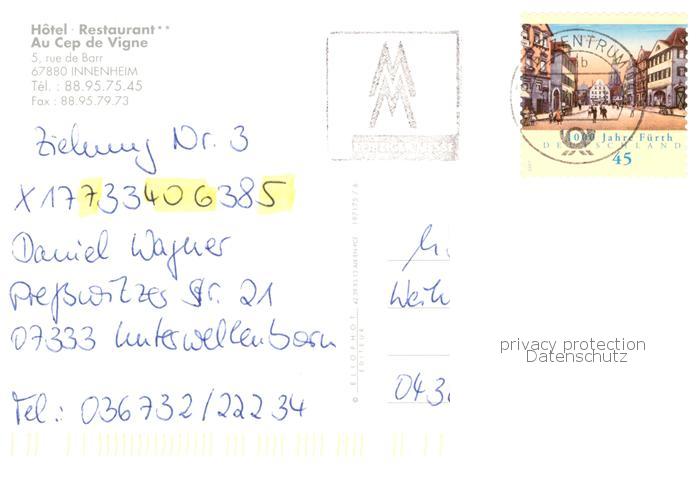 Hôtel · Restaurant**
Au Cep de Vigne
5, rue de Barr
67880 INNENHEIM
Tél. : 88.95.75.45
Fax : 88.95.79.73
Ziehung Nr. 3
X 17733406385
Daniel Wagner
Preßwitzer Str. 21
07333 Unterwellenborn
Tel.: 036732/22234
© ELLOPHOT
EDITEUR
Weih
043
1000 Jahre Fürth
DEUTSCHLAND
45
privacy protection
Datenschutz